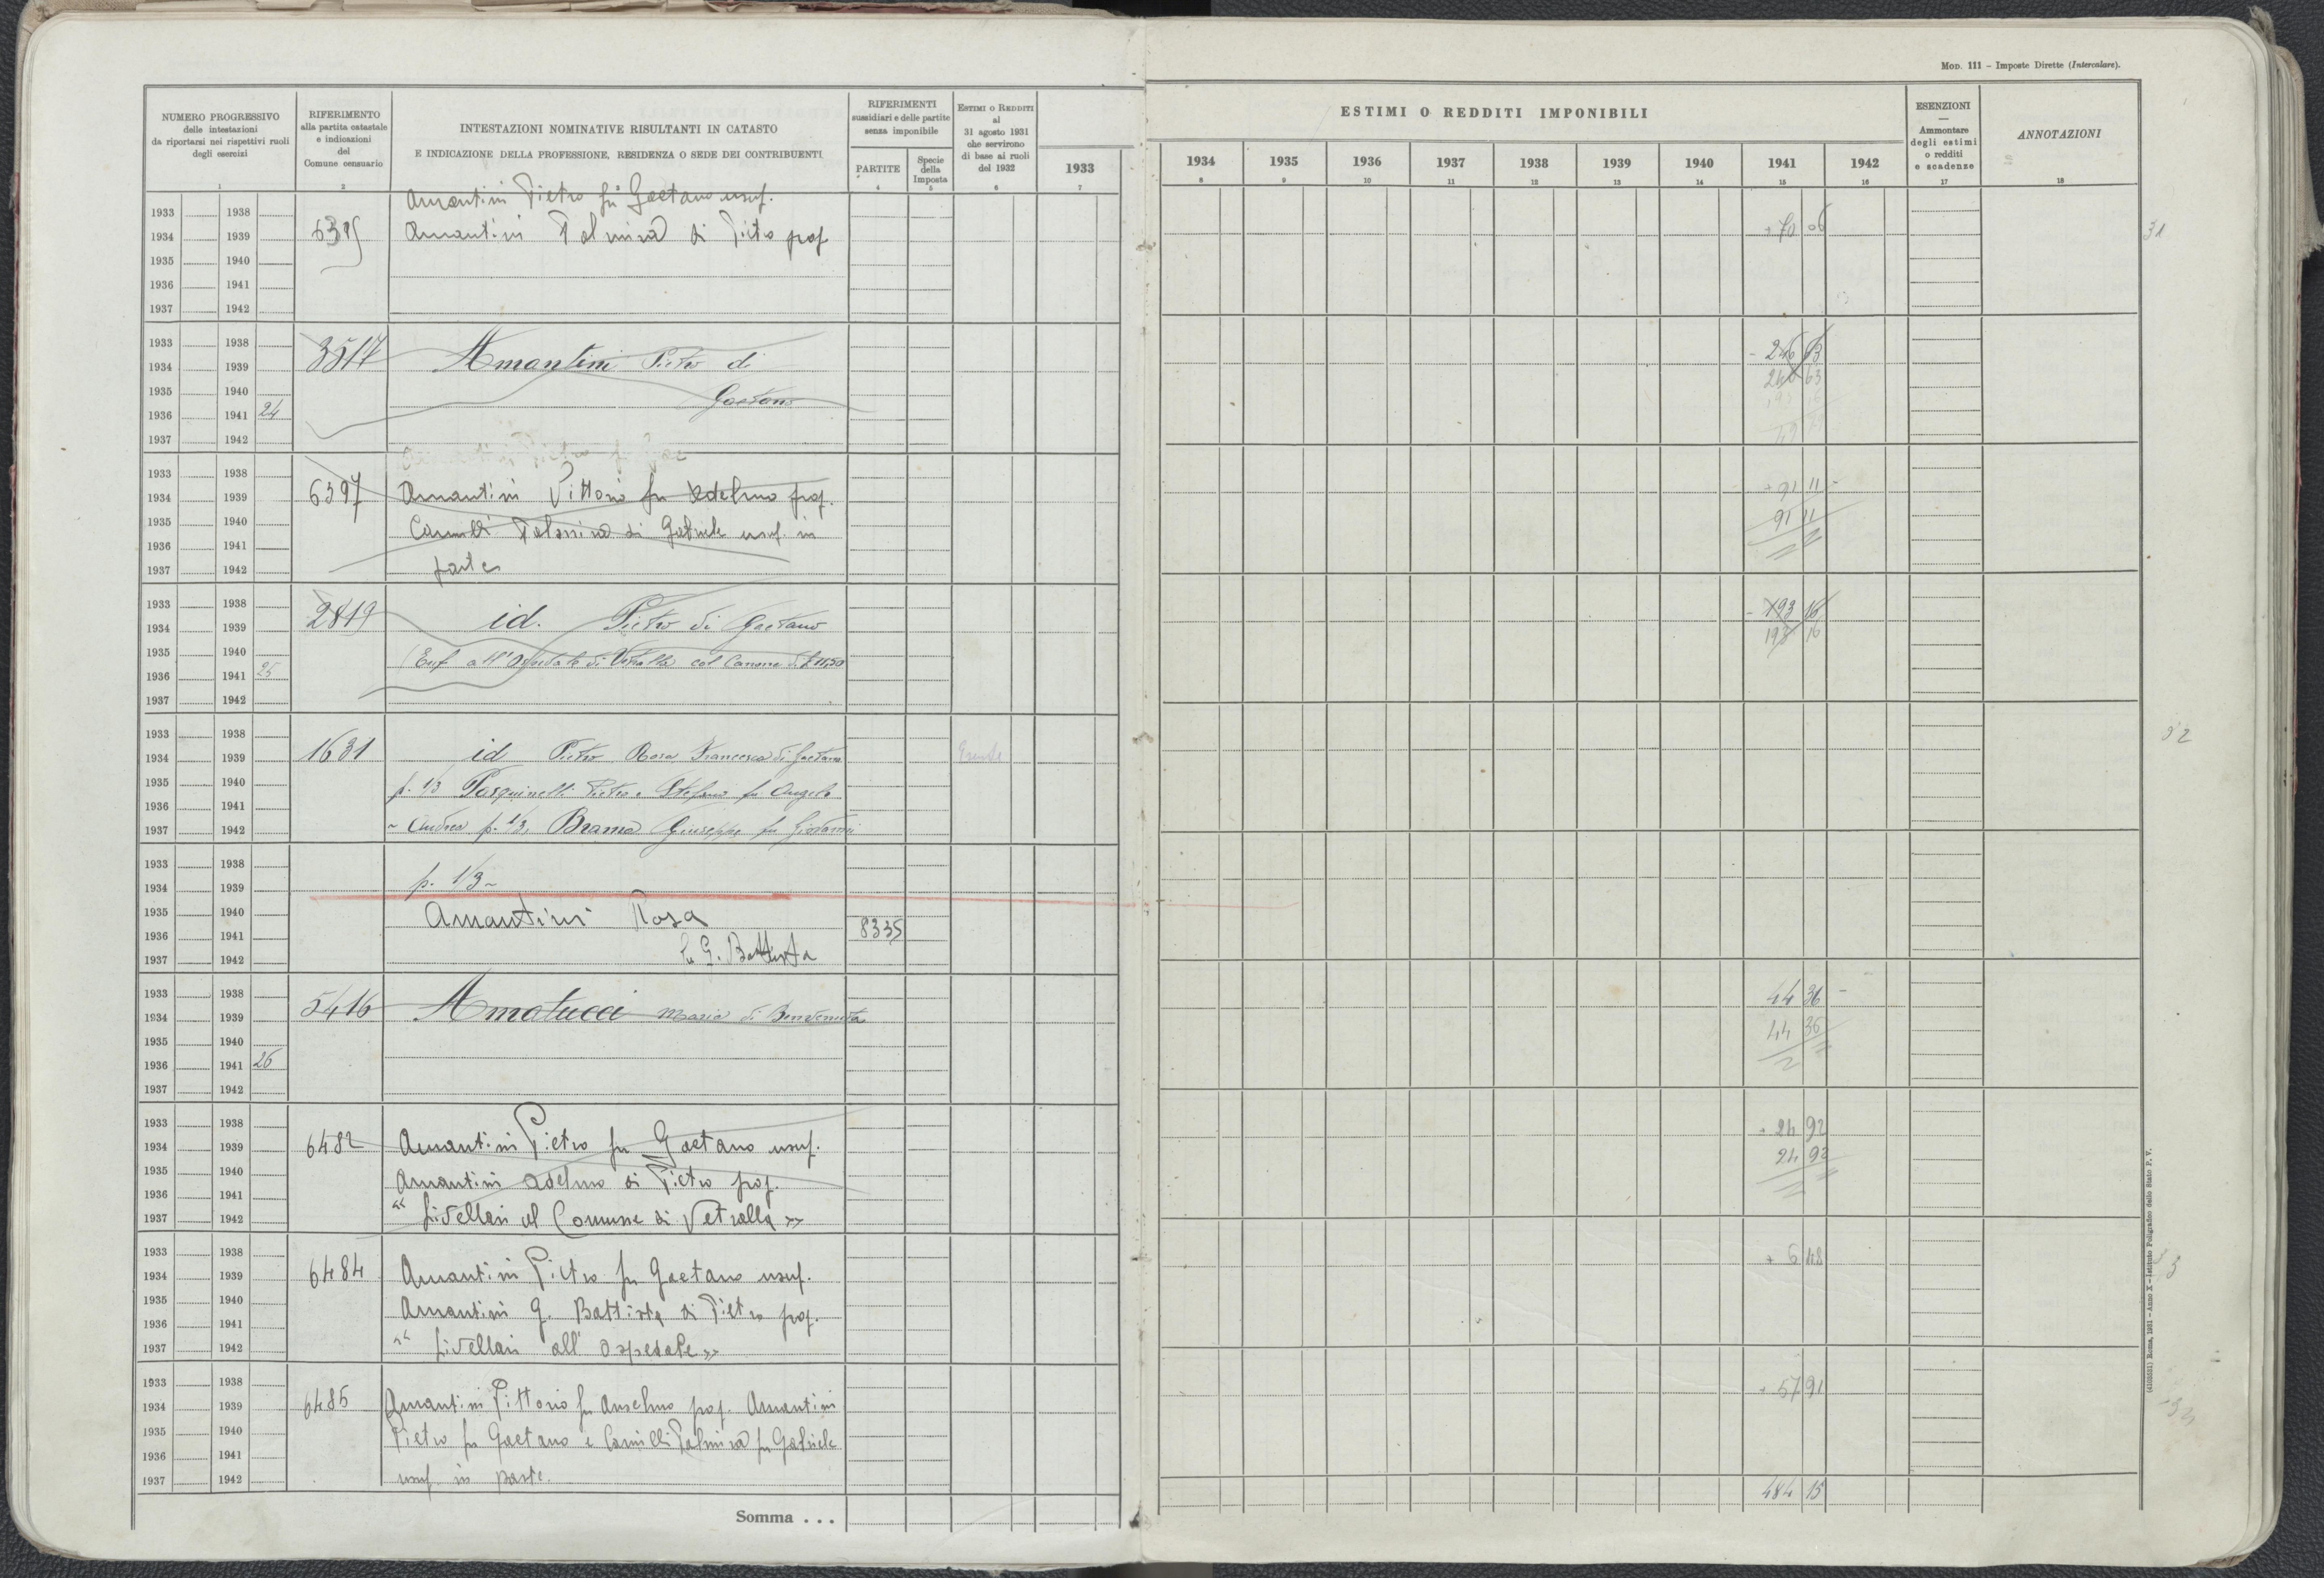 Mod. 111 - Imposte Dirette (Intercalare).
NUMERO PROGRESSIVO
delle intestazioni
da riportarsi nei rispettivi ruoli
degli esercizi
1
RIFERIMENTO
alla partita catastale
e indicazioni
del
Comune censuario
2
INTESTAZIONI NOMINATIVE RISULTANTI IN CATASTO
E INDICAZIONE DELLA PROFESSIONE, RESIDENZA O SEDE DEI CONTRIBUENTI
RIFERIMENTI
sussidiari e delle partite
senza imponibile
PARTITE
4
Specie
della
Imposta
5
Estimi o Redditi
al
31 agosto 1931
che servirono
di base ai ruoli
del 1932
6
1933
7
ESTIMI O REDDITI IMPONIBILI
1934 1935 1936 1937 1938 1939 1940 1941 1942
8 9 10 11 12 13 14 15 16
ESENZIONI
—
Ammontare
degli estimi
o redditi
e scadenze
17
ANNOTAZIONI
18
Amantini Pietro fu Gaetano usuf.
1933 1938
1934 1939 Amantini Palmira di Pietro prop. + 70 06 31
1935 1940
1936 1941
1937 1942
1933 1938
1934 1939 3517 Amantini Pietro di - 246 63
1935 1940 Gaetano 246 63
1936 1941 24
1937 1942
1933 1938
1934 1939 6397 Amantini Vittorio fu Adelmo prop. + 91 11 -
1935 1940 Camilli Palmira di Gabriele usuf. in 91 11
1936 1941
1937 1942 parte
1933 1938
1934 1939 2819 id. Pietro di Gaetano - 193 16
1935 1940 193 16
1936 1941 25 (Enf all'Ospedale di Vetralla col Canone di £ 11,50
1937 1942
1933 1938
1934 1939 1631 id Pietro Rosa Francesca di Gaetano Esente 32
1935 1940 p. 1/3 Pasquinelli Pietro e Stefano fu Angelo
1936 1941
1937 1942 ~ Andrea p. 1/3, Brama Giuseppe fu Giovanni
1933 1938
1934 1939 p. 1/3 ~
1935 1940 Amantini Rosa
1936 1941 8335
1937 1942 fu G. Battista
1933 1938
1934 1939 5416 Amatucci Maria di Benvenuto 44 36 -
1935 1940 44 36
1936 1941 26
1937 1942
1933 1938
1934 1939 6482 Amantini Pietro fu Gaetano usuf. + 24 92
1935 1940 Amantini Adelmo di Pietro prop. 24 92
1936 1941
1937 1942 " Livellari al Comune di Vetralla "
1933 1938
1934 1939 6484 Amantini Pietro fu Gaetano usuf. + 6 48
1935 1940 Amantini G. Battista di Pietro prop.
1936 1941
1937 1942 " Livellari all' Ospedale "
1933 1938
1934 1939 6485 Amantini Vittorio fu Anselmo prop. Amantini + 57 91
1935 1940 Pietro fu Gaetano e Camilli Palmira fu Gabriele
1936 1941
1937 1942 usuf. in parte.
484 15
Somma . . .
Roma, 1931 - Anno X - Istituto Poligrafico dello Stato P. V.